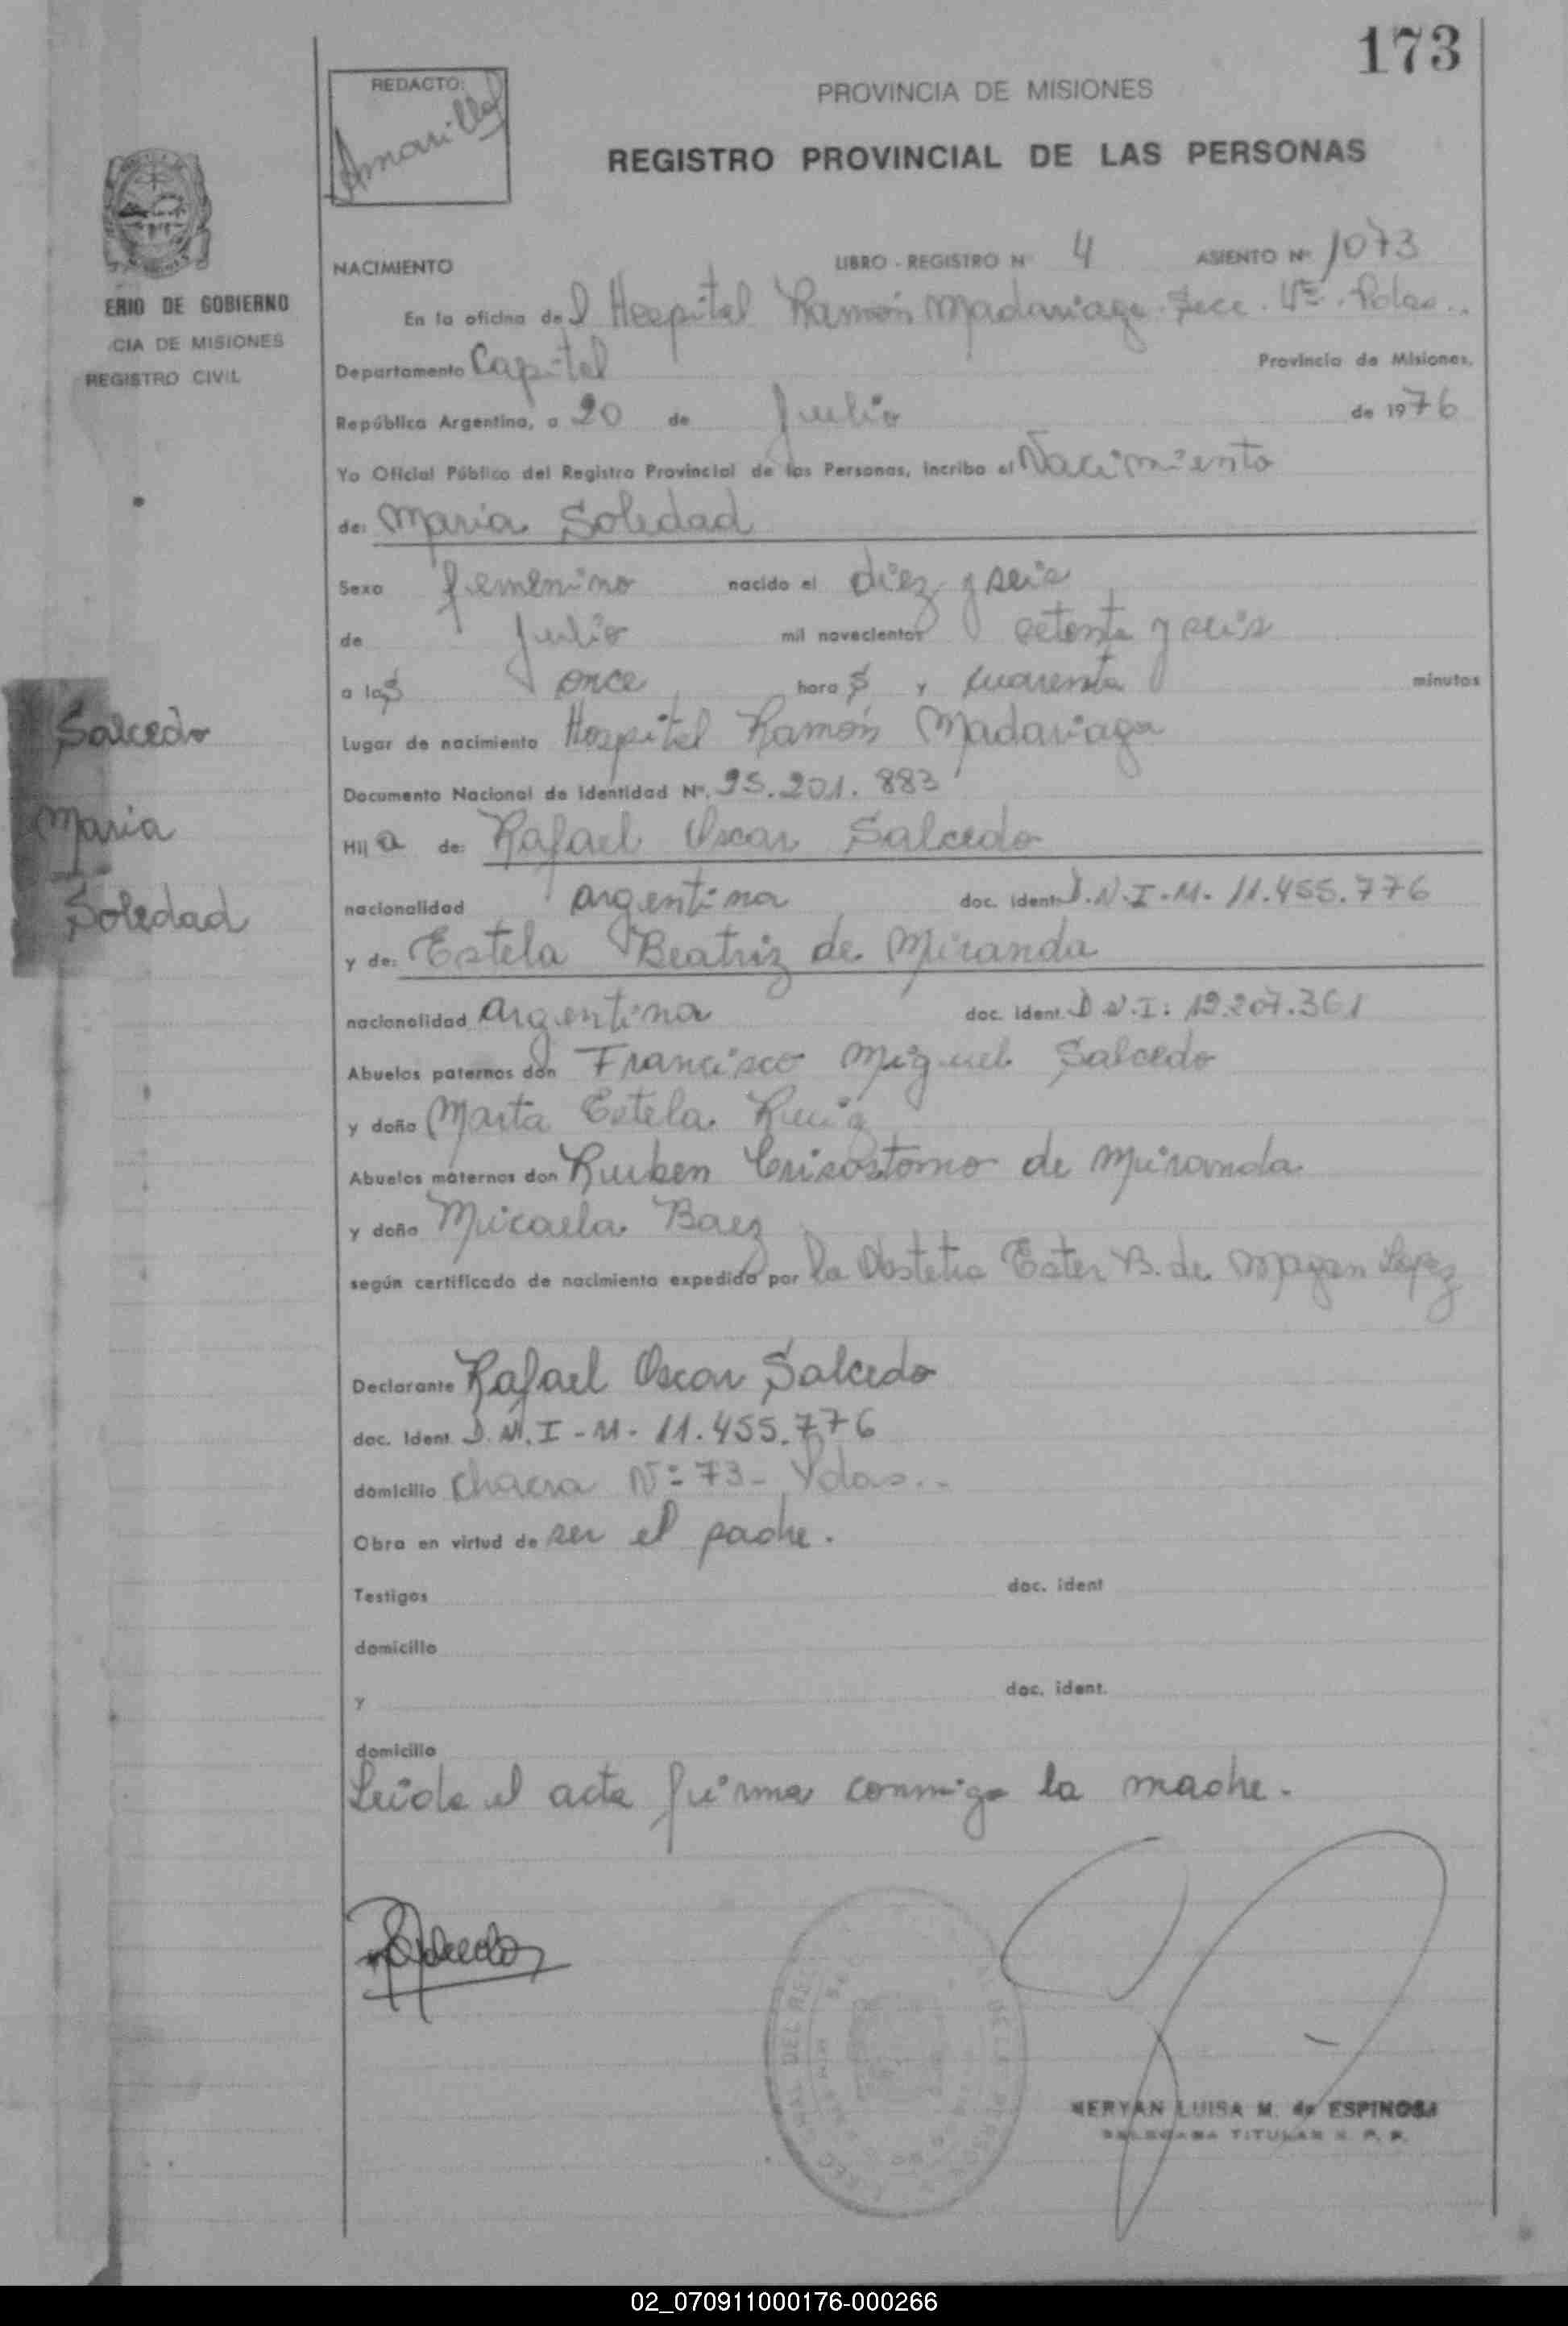 173
REDACTO:
Amarilla
PROVINCIA DE MISIONES
REGISTRO PROVINCIAL DE LAS PERSONAS
ERIO DE GOBIERNO
CIA DE MISIONES
REGISTRO CIVIL
NACIMIENTO LIBRO - REGISTRO N 4 ASIENTO Nº 1073
En la oficina del Hospital Ramón Madariaga Secc. Pdas..
Departamento Capital Provincia de Misiones.
República Argentina, a 20 de Julio de 1976
Yo Oficial Público del Registro Provincial de las Personas, incribo el Nacimiento
de: Maria Soledad
Sexo femenino nacido el diez y seis
de Julio mil novecientos setenta y seis
a las once horas y cuarenta minutos
Lugar de nacimiento Hospital Ramón Madariaga
Documento Nacional de Identidad Nº. 25.201.883
Hija de: Rafael Oscar Salcedo
nacionalidad argentina doc. ident. D.N.I-M- 11.455.776
y de: Estela Beatriz de Miranda
nacionalidad argentina doc. ident. D.N.I: 12.207.361
Abuelos paternos don Francisco Miguel Salcedo
y doña Marta Estela Ruiz
Abuelos maternos don Ruben Crisostomo de Miranda
y doña Micaela Baez
según certificado de nacimiento expedido por la Obstetra Ester B. de Lopez
Declarante Rafael Oscar Salcedo
doc. Ident. D.N.I-M- 11.455.776
domicilio Chacra Nº 73- Pdas..-
Obra en virtud de ser el padre.
Testigos doc. ident
domicilio
y doc. ident.
domicilio
Leida el acta firma conmigo la madre.-
Salcedo
Maria
Soledad
NERYAN LUISA M. de ESPINOSA
DELEGADA TITULAR R. P. P.
02_070911000176-000266